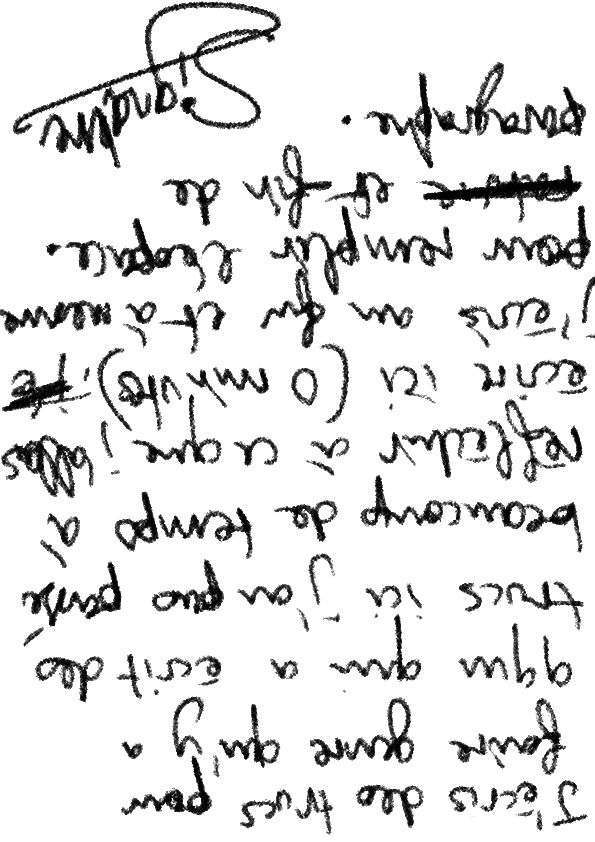 J'écris des trucs pour
faire genre qu'y a
qqun qui a écrit des
trucs ici j'ai pas passé
beaucoup de temps à
réfléchir à ce que j'allais
écrire ici (0 minutes)
j'écris au fur et à mesure
pour remplir l'espace.
et fin de
paragraphe.
Signature